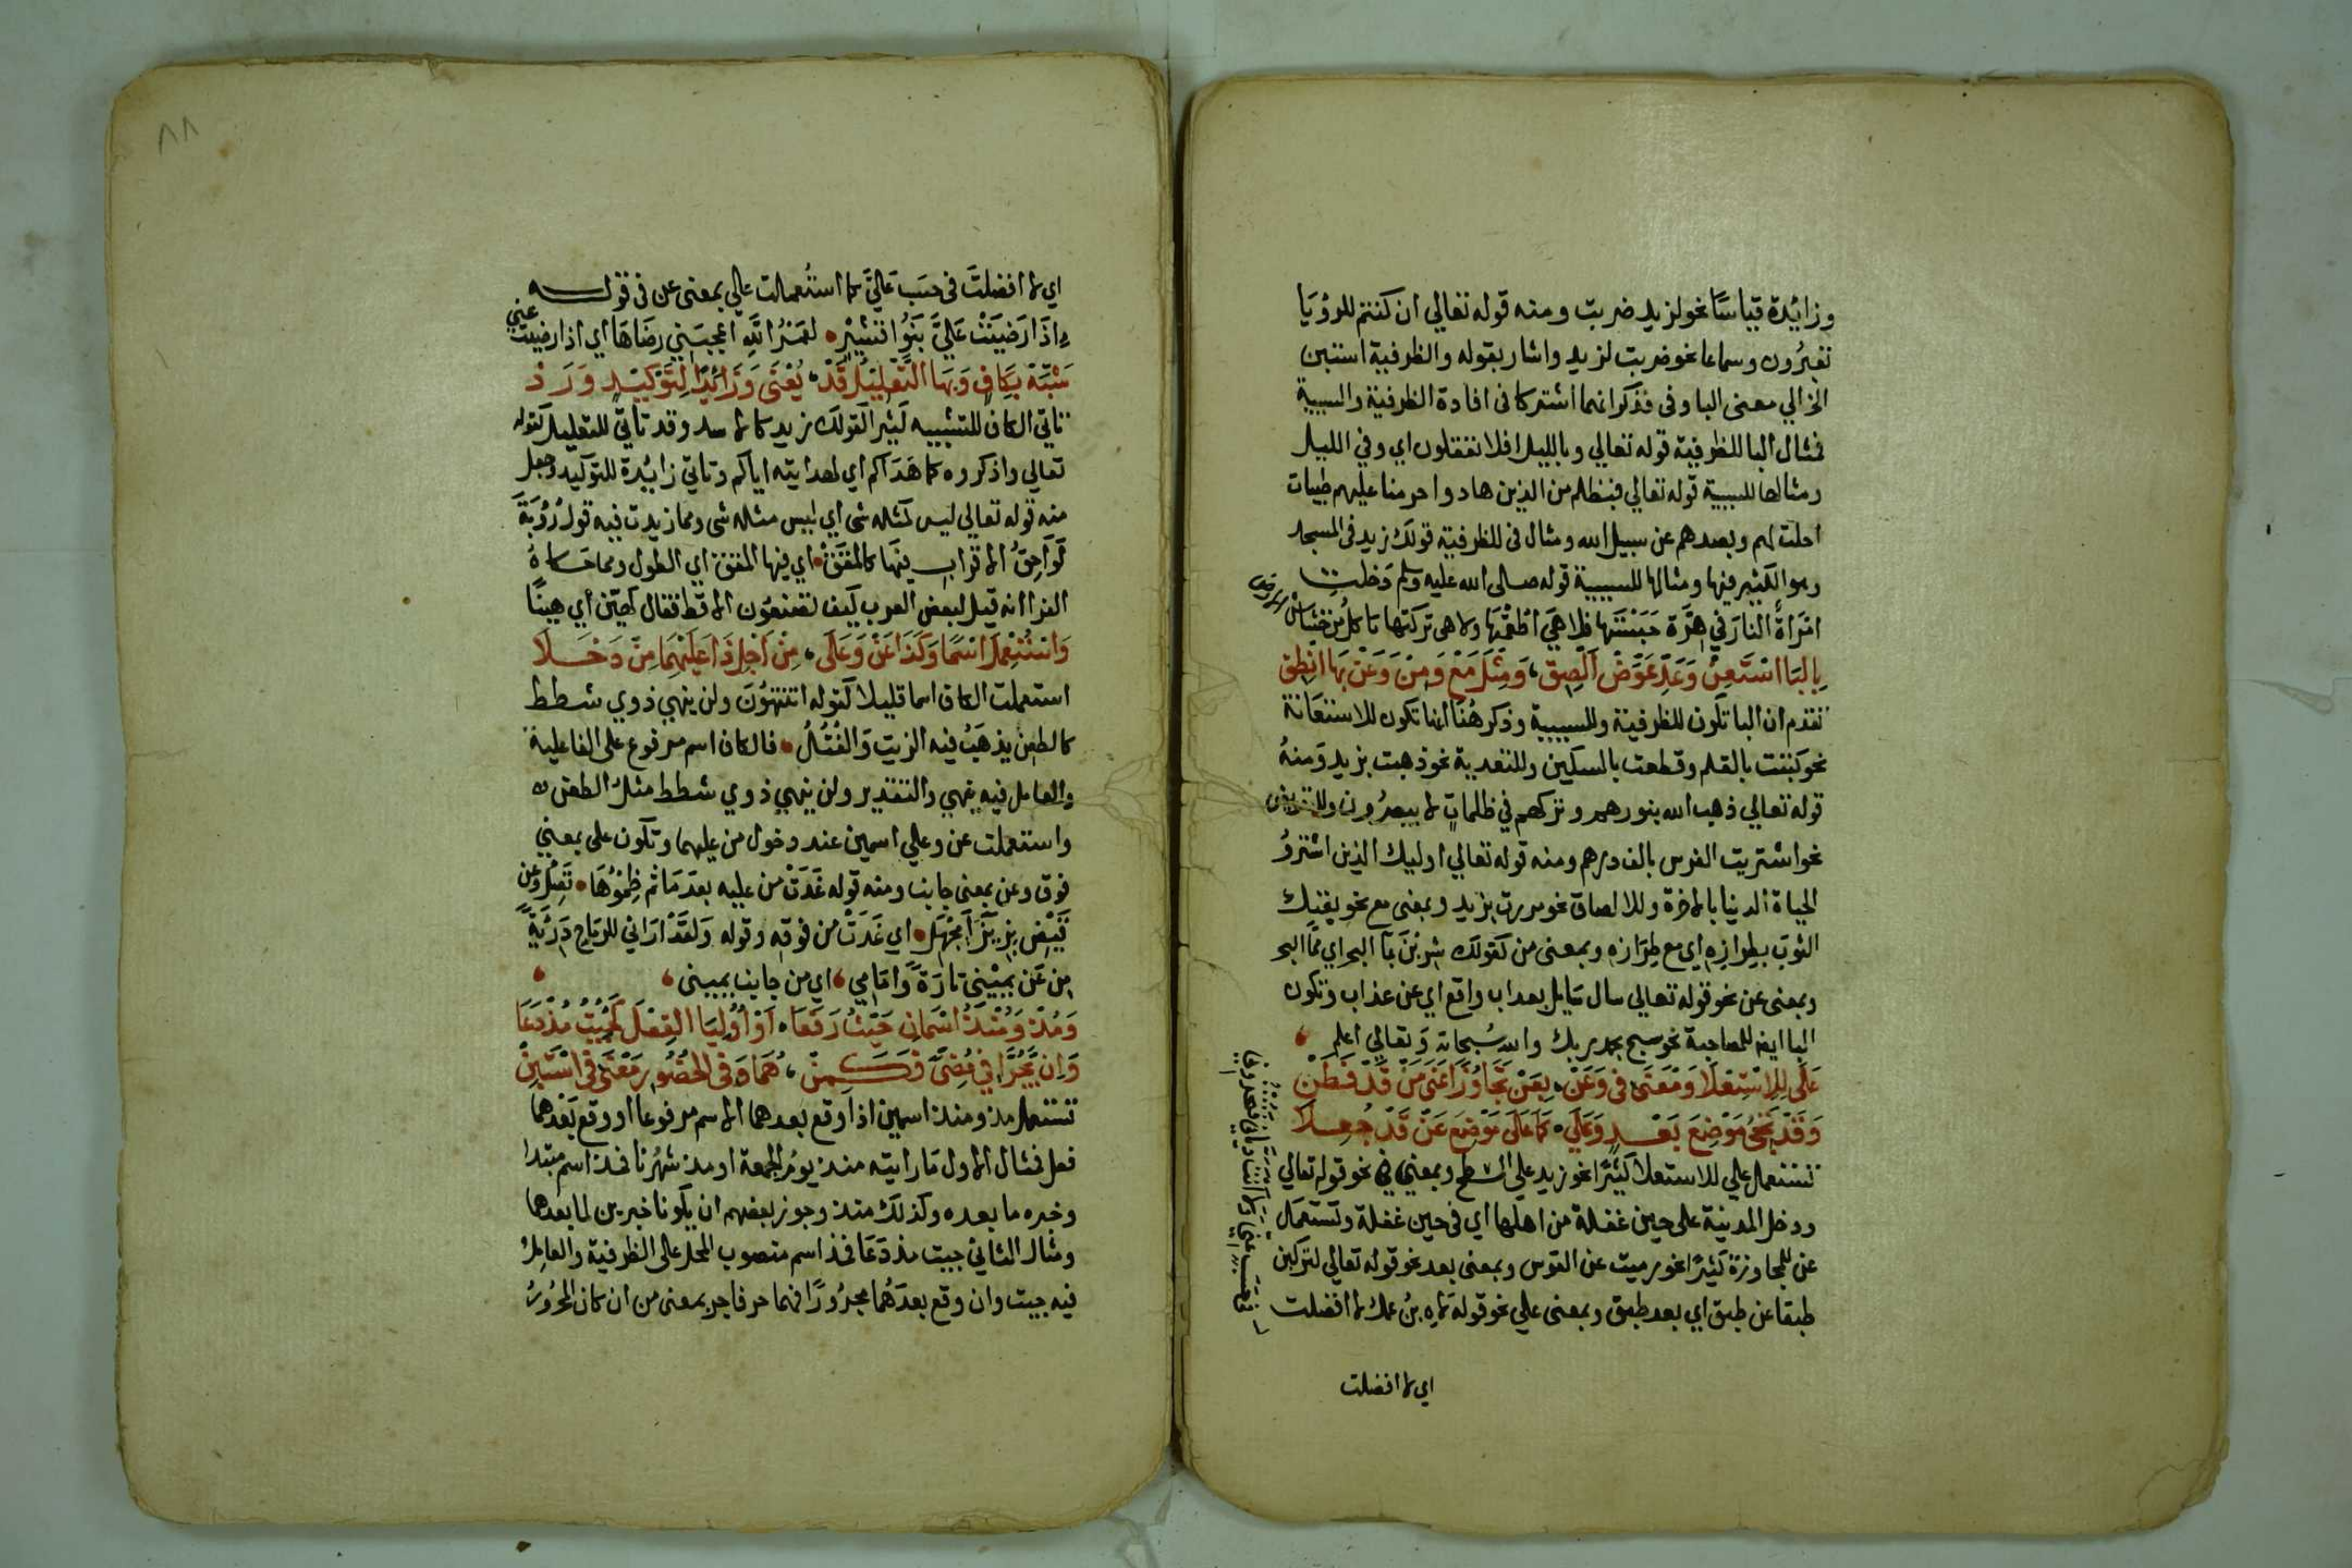 وزائدة قياسًا نحو لزيد ضربت ومنه قوله تعالي ان كنتم للرؤيا
تعبُرون وسماعا نحو ضربت لزيد واشار بقوله والظرفية استبن
الخ الي معني البا وفي فذكر انهما اشتركا في افادة الظرفية والسببية
فمثال البا للظرفية قوله تعالي وبالليل افلا تعقلون اي وفي الليل
ومثالها للسببية قوله تعالي فبظلم من الذين هادوا حرمنا عليهم طيبات
احلت لهم وبصدهم عن سبيل الله ومثال في للظرفية قولك زيد في المسجد
وهو الكثير فيها ومثالها للسببية قوله صلي الله عليه وسلم دَخلتِ
امرَاةٌ النارَ في هِرَّة حَبَسَتها فلا هيَ اطعَمَتها ولا هي تركتها تاكلُ من خشاش الارض
بِالبَا استَعِنْ وَعَدِّ عَوِّضْ اَلصِقِ، وَمِثلَ مَعْ وَمِنْ وَعَنْ بَهَا انْطِقِ
تقدم ان البا تكون للظرفية وللسببية وذكر هُنا انها تكون للاستعَانة
نحو كَتبت بالقلم وقطعت بالسكين وللتعدية نحو ذهبت بزيد وَمنهُ
قوله تعالي ذهب الله بنورهم وتركهم في ظلماتٍ لا يبصرُون وللتعويض
نحو اشتريت الفرس بالف درهم ومنه قوله تعالي اوليك الذين اشتروُ
الحياة الدنيا بالاخرة وللالصاق نحو مررت بزيد وبمعني مع نحو بعتك
الثوبَ بطِرازِه اي مع طِرَازه وبمعني من كقولك شربْنَ بَمَا البحر اي ممَّا البحر
وبمعني عن نحو قوله تعالي سال سَايل بعداب واقع اي عن عذاب وتكون
البا ايض للمصاحبة نحو سبح بحمد ربك والله سُبحانه وَتعالي اعلم ،
عَلَي لِلِاسْتِعْلَا وَمَعْنَي في وَعَنْ، بِعَنْ تَجَاوُزًا عَنَي مَنْ قَدْ فَطَنْ
وَقَدْ تَجِيْ مَوْضِعَ بَعْدٍ وَعَلَي، كَمَا عَلَي مَوْضِعَ عَنْ قَدْ جُعِلَا
تستعمل علي للاستعلا كَثيرًا نحو زيد علي السطح وبمعني في نحو قوله تعالي
ودخل المدينة علي حين غفلة من اهلها اي في حين غفلة وتستعمَال
عن للمجاوزة كَثيرًا نحو رميت عن القوس وبمعني بعد نحو قوله تعالي لتركبن
طبقا عن طبق اي بعد طبق وبمعني علي نحو قوله لَاهِ بنُ عمك لا افضلت
اي لا افضلت
٨٨
اي لا افضلتَ في حسَب عَاليَّ كما استُعمالت علي بمعني عن في قوله
اِذَا رَضِيَتْ عَليَّ بَنُوا قشَيْرٍ • لعَمْرُ اللّهِ اعجَبَني رضَاهَا اي اذا رضيت عني
شَبِّهْ بِكَافٍ وَبِهَا التَّعْلِيلُ قَدْ، يُعْنَي وَزَائِدًا لِتَوْكِيْدٍ وَرَدْ
تاتي الكاف للتشبيه كَثيرا كقولك زيد كالاسد وقد تاتي للتعليل كقوله
تعالي واذكروه كما هَدَاكم اي لهدايته اياكم وتاتي زايدة للتوكيد وجعل
منه قوله تعالي ليس كمثله شي اي ليس مثله شي ومما زيدت فيه قول رُؤبَةَ
لَوَاحِقُ الاقراب فيهَا كالمقَقْ • اي فيها المقق اي الطول ومما حَكاهُ
الفرا انه قيل لبعض العرب كَيف تصنعُون الاقط فقال كهَيّن اي هينًا
وَاسْتُعْمِلَ اسْمًا وَكَذَا عَنْ وَعَلَي، مِنْ اَجْلِ ذَا عَلَيْهِمَا مِنْ دَخَلَا
استعملت الكاف اسما قليلا كقوله اتنتهُونَ ولن ينهي ذوي شطط
كالطعن يذهَبُ فيه الزيت وَالفتُلُ • فالكاف اسم مرفوع علي الفاعلية
والعامل فيه ينهي والتقدير ولن ينهي ذوي شطط مثل الطعن
واستعملت عن وعلي اسمين عند دخول من عليهما وتكون علي بمعني
فوق وعن بمعني جانب ومنه قوله غَدَتْ من عليه بعدَمَا تم ظِمؤُهَا • تَصِلُّ وعن
قَيْضٍ بِزِيزَاءَ مَجْهَلِ • اي غَدَتْ من فوقه وقوله وَلقَدْ ارَاني للرمَاحِ دَرِيَّةً
مِن عَن يَمِيْني تارَةً وَامَامِي، اي من جانب يميني ،
وَمُذْ وَمُنْذُ اسْمَانِ حَيْثُ رَفَعَا، اَوْ اُوْلِيَا الفِعْلَ كَجِيْتُ مُذْ دَعَا
وَاِنْ يَجُرَّا في مُضِيٍّ فَكَمِنْ، هُمَا وَفي الحُضُورِ مَعْنَي في اسْتَبِنْ
تستعمل مذ ومنذ اسمين اذا وقع بعدهما الاسم مرفوعا او وقع بَعْدهما
فعل فمثال الاول مَا رايته منذ يومُ الجمعة او مذ شهرُنا فمذ اسم مبتدا
وخبره ما بعده وكذلك منذ وجوز بعضهم ان يكونا خبرين لما بعدها
ومثال الثاني جيت مذ دَعَا فمذ اسم منصوب المحل علي الظرفية والعامِل
فيه جيت وان وقع بعدَهُما مجرُورًا فهما حرفا جر بمعني من ان كان المجرُورُ